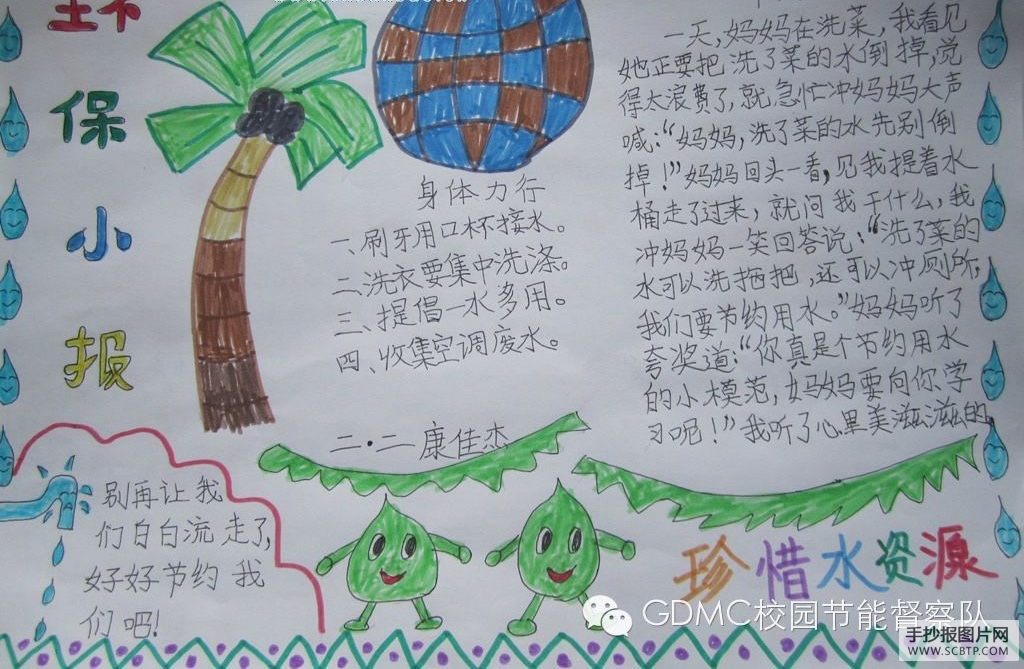 环
保
小
报
身体力行
一、刷牙用口杯接水。
二、洗衣要集中洗涤。
三、提倡一水多用。
四、收集空调废水。
二.二 康佳杰
一天,妈妈在洗菜,我看见
她正要把洗了菜的水倒掉,觉
得太浪费了,就急忙冲妈妈大声
喊:“妈妈,洗了菜的水先别倒
掉!”妈妈回头一看,见我提着水
桶走了过来,就问我干什么,我
冲妈妈一笑回答说:“洗了菜的
水可以洗拖把,还可以冲厕所,
我们要节约用水。”妈妈听了
夸奖道:“你真是个节约用水
的小模范,妈妈要向你学
习呢!”我听了心里美滋滋的。
别再让我
们白白流走了,
好好节约我
们吧!
珍惜水资源
GDMC校园节能督察队
手抄报图片网
WWW.SCBTP.COM